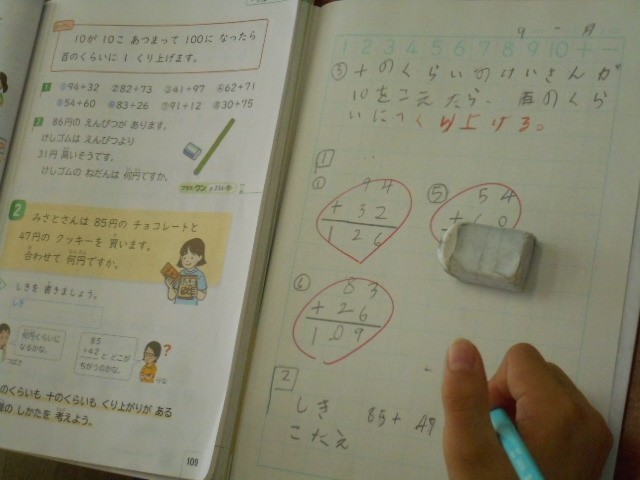 10が 10こ あつまって 100に なったら
百のくらいに 1 くり上げます。
1 ①94+32 ②82+73 ③41+97 ④62+71
⑤54+60 ⑥83+26 ⑦91+12 ⑧30+75
2 86円の えんぴつが あります。
けしゴムは えんぴつより
31円 高いそうです。
けしゴムの ねだんは 何円ですか。
2
みさとさんは 85円の チョコレートと
47円の クッキーを 買います。
合わせて 何円ですか。
しきを 書きましょう。
しき
何円くらいに
なるかな。
85
+42 と どこが
ちがうのかな。
のくらいも 十のくらいも くり上がりが ある
しかたを 考えよう。
109
9 - 月
1 2 3 4 5 6 7 8 9 10 + -
③ 十のくらいのけいさんが
10をこえたら、百のくら
いに1くり上げる。
1
①
94
+ 32
126
⑤
54
+ 0
⑥
83
+ 26
109
2
しき 85+
こたえ